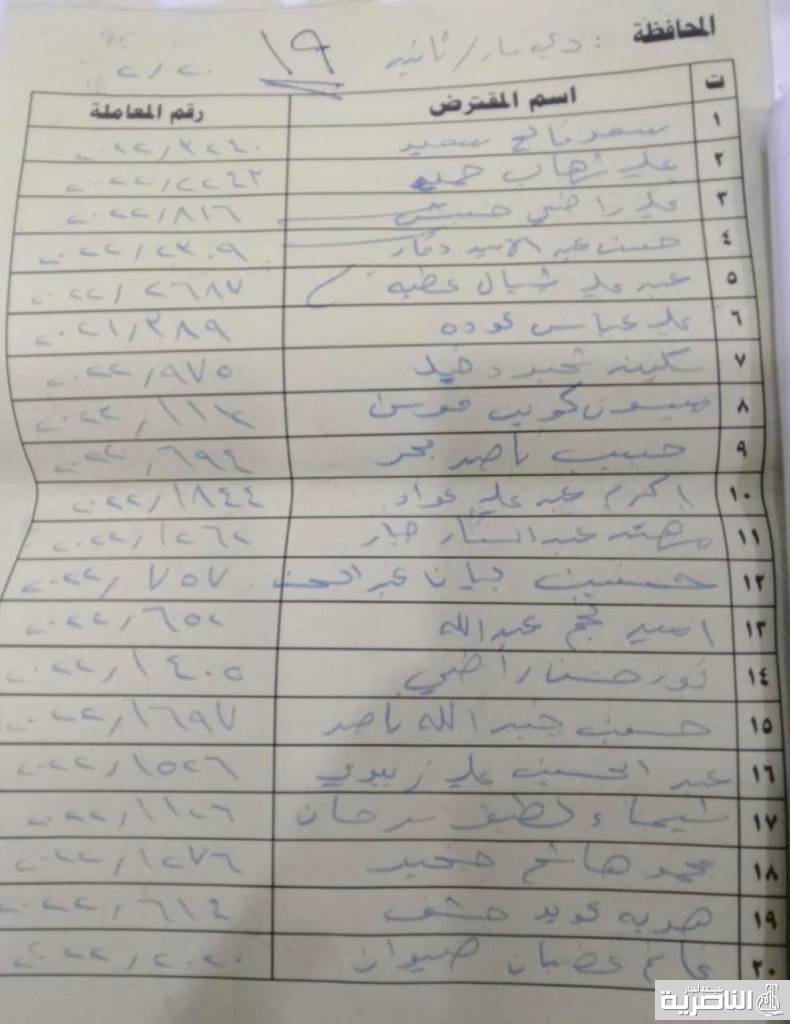 المحافظة : ذي قار / ثانيه ١٩
ت اسم المقترض رقم المعاملة
١ سعد فالح سعيد ٢٠٢٢/٣٢٤٠
٢ علي شهاب حميد ٢٠٢٢/٢٢٤٢
٣ علي راضي حسين ٢٠٢٢/٨١٦
٤ حسن عبد الامير دفار ٢٠٢٢/٢٣٠٩
٥ عبد علي شيال عطيه ٢٠٢٢/٢٦٨٧
٦ علي عباس عوده ٢٠٢١/٣٨٩
٧ سكينه دخيل ٢٠٢٢/٩٧٥
٨ ميسون موسى ٢٠٢٢/١١٣
٩ حبيب ناصر بحر ٢٠٢٢/٦٩٤
١٠ اكرم عبد علي عواد ٢٠٢٢/١٨٤٤
١١ عبد الستار جبار ٢٠٢٢/١٢٦٢
١٢ حسنين بيان عبد الحسن ٢٠٢٢/٧٥٧
١٣ امير نجم عبدالله ٢٠٢٢/٦٥٢
١٤ نور حسن راضي ٢٠٢٢/١٤٠٥
١٥ حسين عبد الله ناصر ٢٠٢٢/١٦٩٧
١٦ عبد الحسين علي زبيدي ٢٠٢٢/١٥٢٦
١٧ شيماء لطيف سرحان ٢٠٢٢/١١٢٦
١٨ محمد هاشم ٢٠٢٢/١٢٧٦
١٩ هديه عويد ٢٠٢٢/٦١٤
٢٠ غانم غضبان صيوان ٢٠٢٢/٢٠٢٠
الناصرية